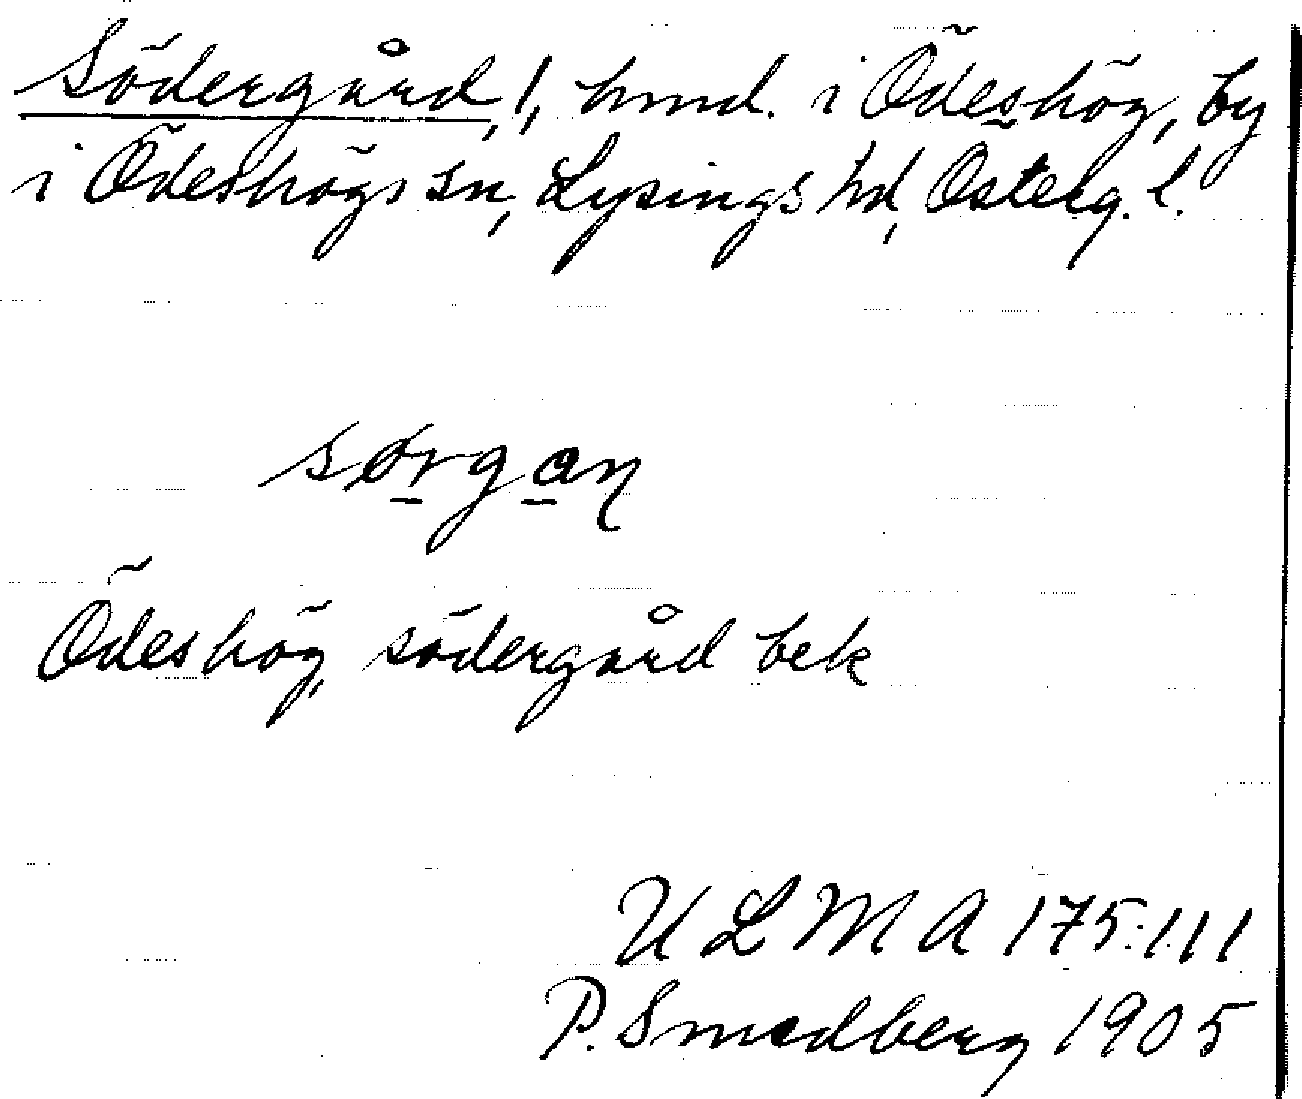 Södergård, !, hmd. i Ödeshög, by
i Ödeshögs sn, Lysings hd, Österg. l.
sørgaɳ
Ödeshög, södergård bek
ULMA 175:111
P. Smedberg 1905